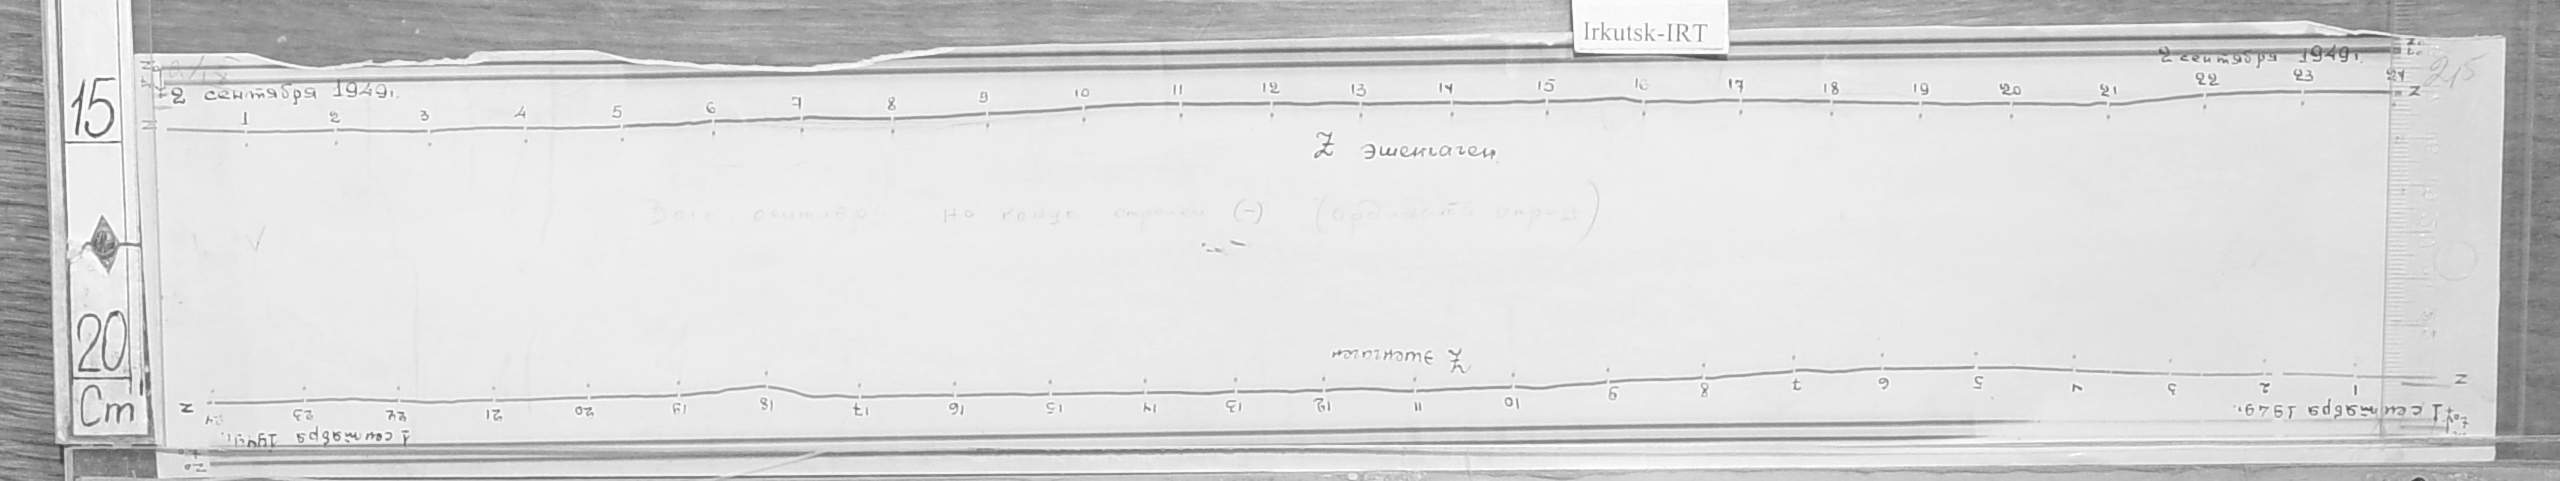 Irkutsk-IRT
15
20
Cm
2 сентября 1949г.
2 сентября 1949г.
25
1 2 3 4 5 6 7 8 9 10 11 12 13 14 15 16 17 18 19 20 21 22 23 24
Z
Z
Z Эшенгаген
на конце стрелки (-) (ордината
Z Эшенгаген
Z
1 2 3 4 5 6 7 8 9 10 11 12 13 14 15 16 17 18 19 20 21 22 23 24
Z
1 сентября 1949г.
1 сентября 1949г.
Z₀